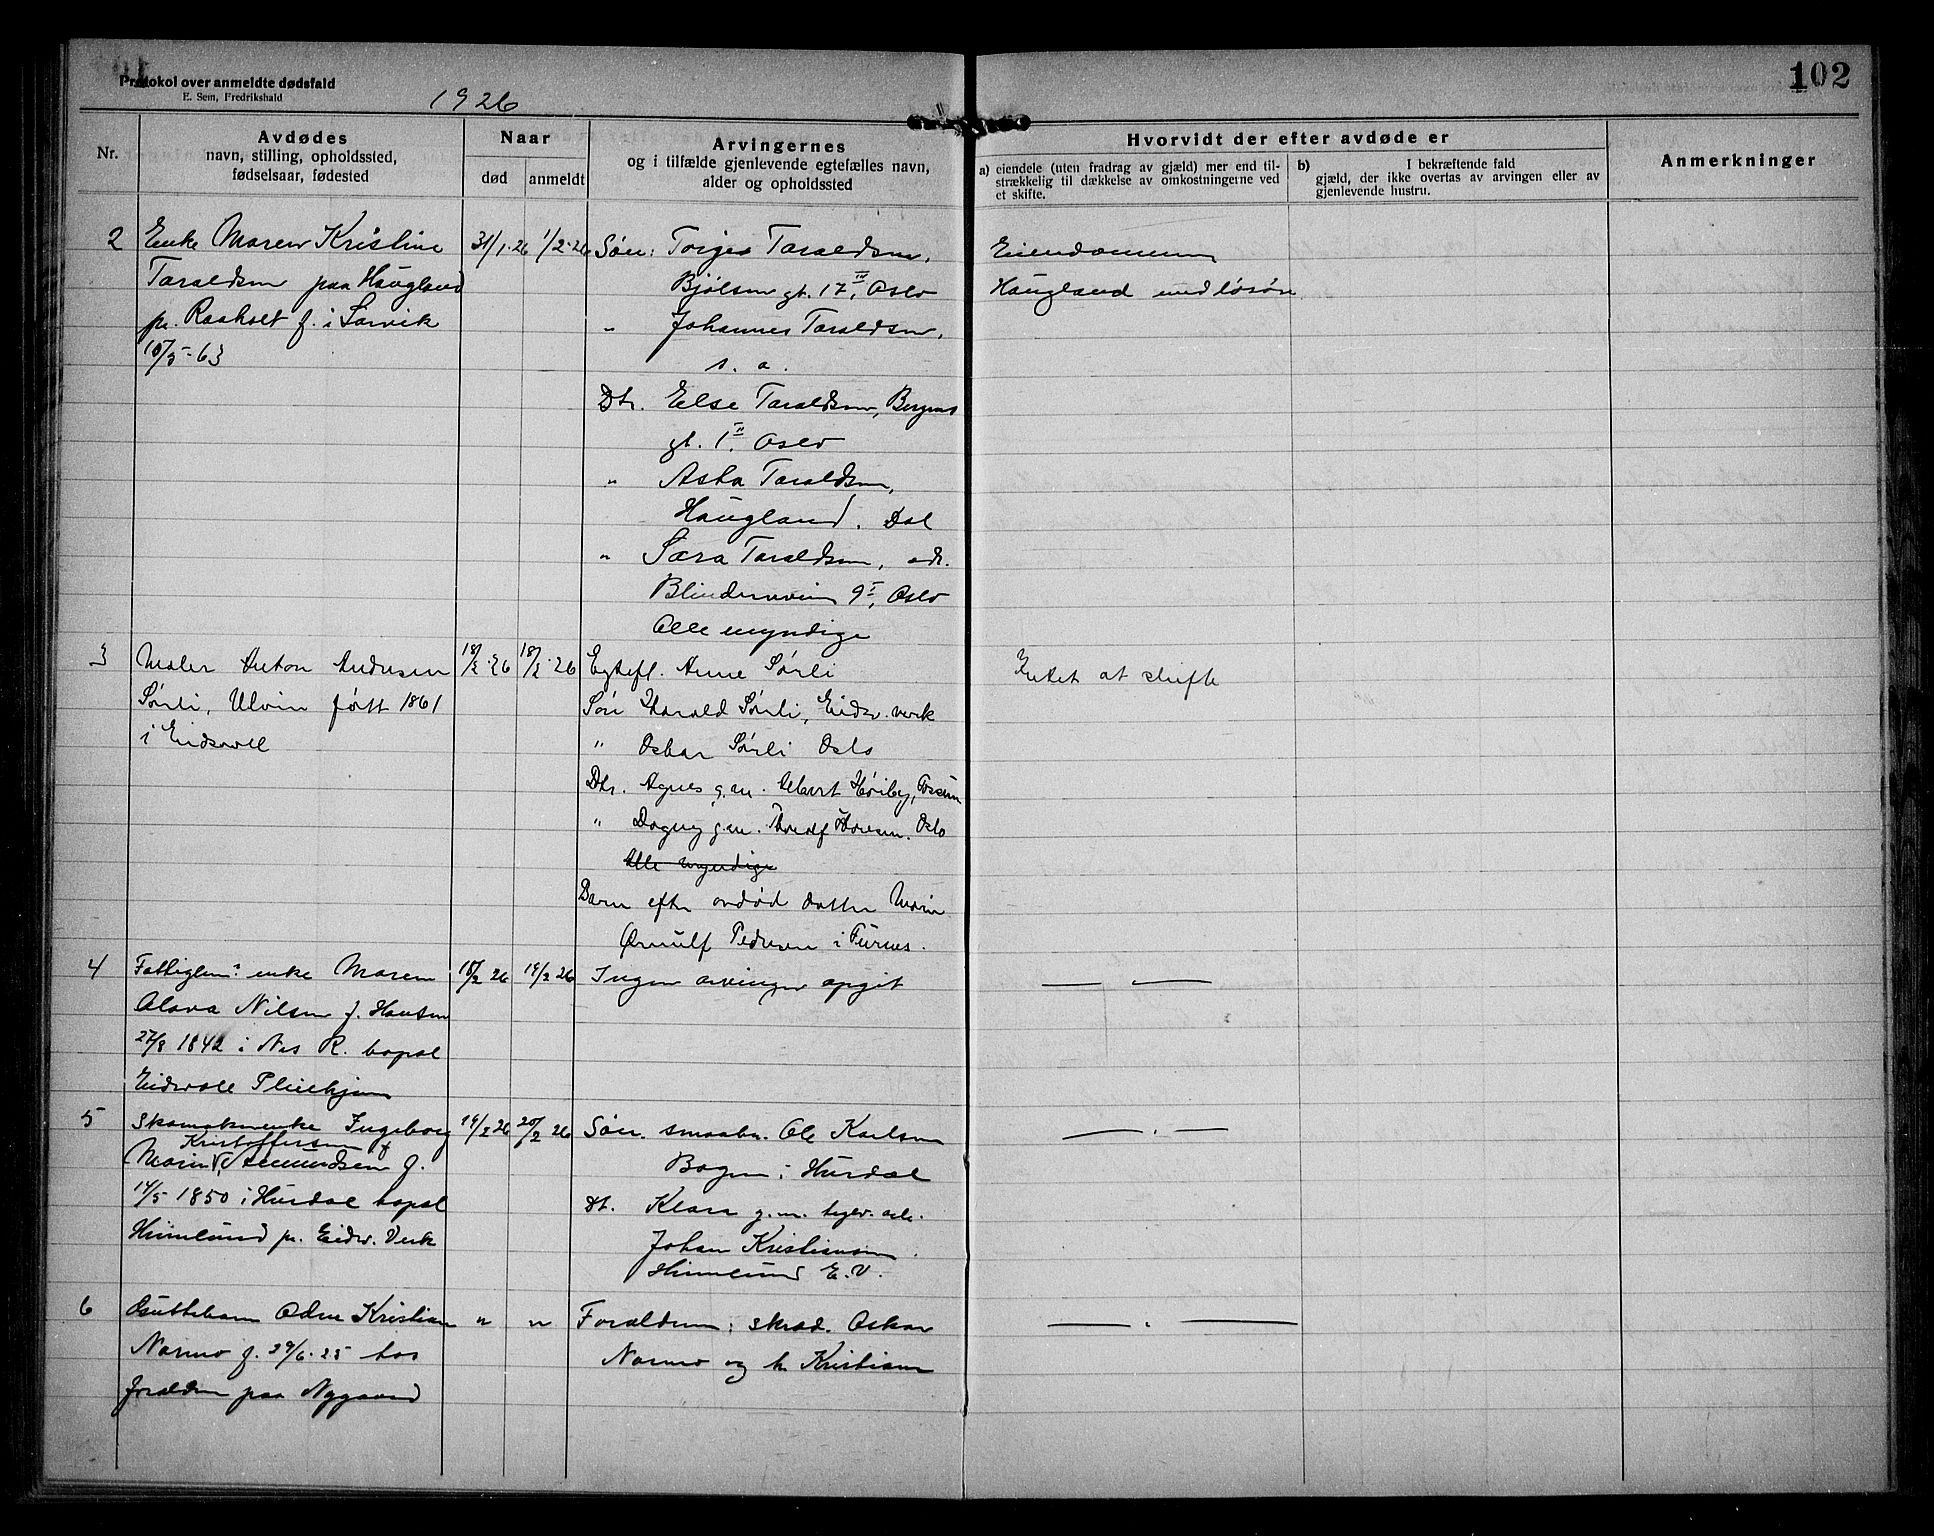 102
Protokol over anmeldte dødsfald
E. Sem, Fredrikshald
1926
Nr.
Avdødes
navn, stilling, opholdssted,
fødselsaar, fødested
Naar
død
anmeldt
Arvingernes
og i tilfælde gjenlevende egtefælles navn,
alder og opholdssted
Hvorvidt der efter avdøde er
a) eiendele (uten fradrag av gjæld) mer end til-
strækkelig til dækkelse av omkostningerne ved
et skifte.
b) I bekræftende fald
gjæld, der ikke overtas av arvingen eller av
gjenlevende hustru.
Anmerkninger
2 Enke Maren Kristine 31/1-26 1/2-26 Søn: Torger Taraldsen, Eiendommen
Taraldsen paa Haugland Bjølsen gt. 17 IV, Oslo Haugland med løsøre
pr. Raaholt f. i " Johannes Taraldsen,
-63 s. a.
Dtr. Else Taraldsen, Bergens
gt. 1 II Oslo
" Asta Taraldsen,
Haugland. Dal
" Sara Taraldsen, adr.
Blindernveien 9 I, Oslo
Alle myndige
3 Maler Anton Andresen 18/2-26 18/2-26 Egtefl. Anne Sørli Intet at skifte
Sørli, Ulvin født 1861 Søn Harald Sørli, Eidsv. verk
i Eidsvoll " Oskar Sørli Oslo
Dtr. Agnes g.m. Albert Høiby, Fossum
" Dagny g.m. Thoralf Hansen. Oslo
Alle myndige
Barn efter avdød datter Marie
Ørnulf Pedersen i Furnes.
4 Fattiglem: enke Maren 18/2 26 19/2 26 Ingen arvinger opgit — —
Nilsen f. Hansen
27/8 1842 i Nes R. bopæl
Eidsvoll Pleiehjem
5 Skomakerenke Ingeborg 19/2 26 20/2 26 Søn. smaabr. Ole Karlsen — " —
Kristoffersen
Marie Amundsen f. Bogen i Hurdal
14/5 1850 i Hurdal bopæl Dt. Klara g.m. arb.
Himlund pr. Eidsv. Verk Johan Kristiansen
Himlund E.V.
6 Guttebarn Odin Kristian " " Forældrene: skræd. Oskar — " —
Narmo f. 29/6-25 hos Narmo og h. Kristiane
forældrene paa Nygaard